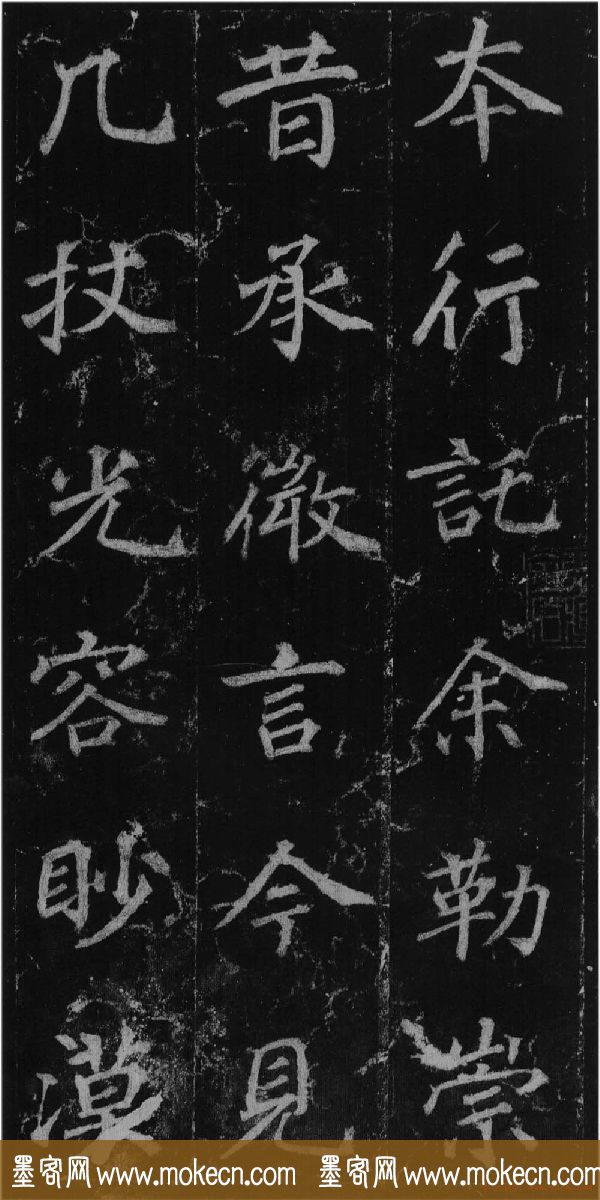 夲行託余勒崇
昔承微言今見
几扙光容眇漠
墨客网 www.mokecn.com 墨客网 www.mokecn.com